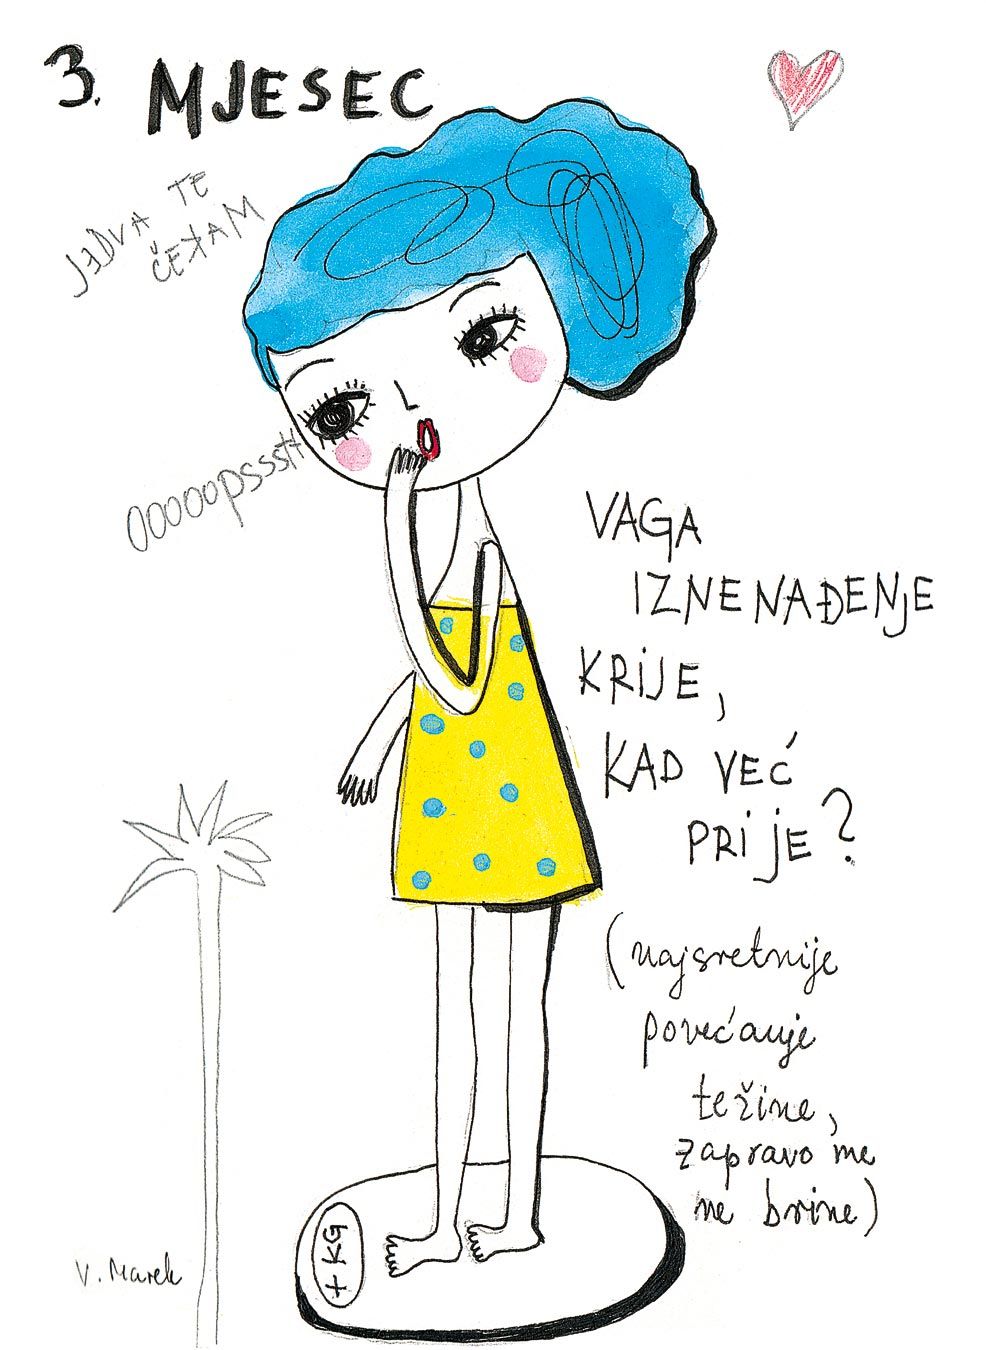 3. MJESEC
JEDVA TE
ČEKAM
OOOOOPSSSTT
VAGA
IZNENAĐENJE
KRIJE,
KAD VEĆ
PRIJE?
(najsretnije
povećanje
težine,
zapravo me
ne brine)
+ KG
V. Marek